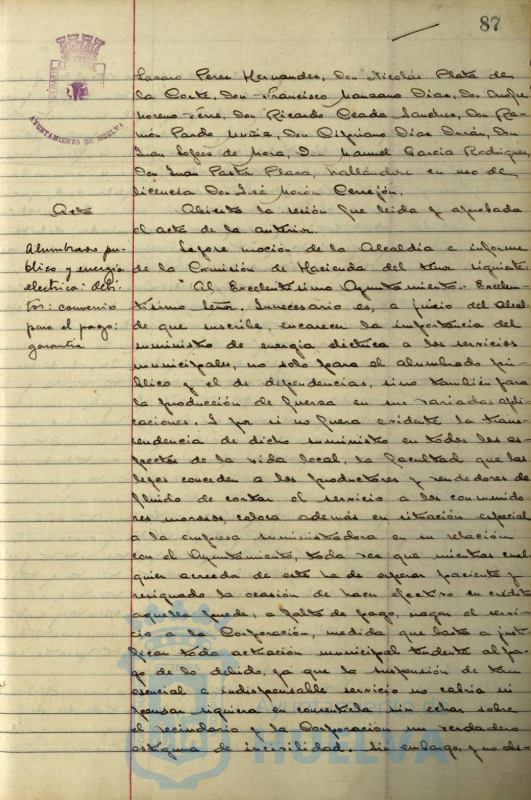 87
AYUNTAMIENTO DE HUELVA
Lazaro Perez Hernandez, Don Nicolás Plata de
la Corte, Don Francisco Manzano Dias, Don Andrés
Moreno Ferre, Don Ricardo Ceada Sanches, Don Ra-
món Pardo Muria, Don Cipriano Dias Durán, Don
Juan Lopes de Mora, Don Manuel Garcia Rodrigues,
Don Juan Pastor Plaza, hallándose en uso de
licencia Don José Morón Cerrejón.
Acta
Abierta la sesión fue leida y aprobada
el acta de la anterior.
Alumbrado pú-
blico y energia
electrica: debi-
tos: convenio
para el pago:
garantia
Leyose moción de la Alcaldia e informe
de la Comisión de Hacienda del tenor siguiente:
"Al Excelentisimo Ayuntamiento.- Excelen-
tisimo Señor. Innecesario es, a juicio del Alcal-
de que suscribe, encarecer la importancia del
suministro de energia electrica a los servicios
municipales, no solo para el alumbrado pú-
blico y el de dependencias, sino también para
la producción de fuerza en sus variadas apli-
caciones. Y por si no fuera evidente la trans-
cendencia de dicho suministro en todos los as-
pectos de la vida local, la facultad que las
leyes conceden a los productores y vendedores de
fluido de cortar el servicio a los consumido-
res morosos, coloca además en situación especial
a la empresa suministradora en su relación
con el Ayuntamiento, toda vez que mientras cual-
quier acreedor de este ha de esperar paciente y
resignado la ocasión de hacer efectivo su crédito
aquella puede, a falta de pago, negar el servi-
cio a la Corporación, medida que basta a justi-
ficar toda actuación municipal tendente al pa-
go de lo debido, ya que la suspensión de tan
esencial e indispensable servicio no cabria ni
pensar siquiera en consentirla sin echar sobre
el vecindario y la Corporación un verdadero
estigma de incivilidad. Sin embargo, y no obs-
AYUNTAMIENTO
HUELVA